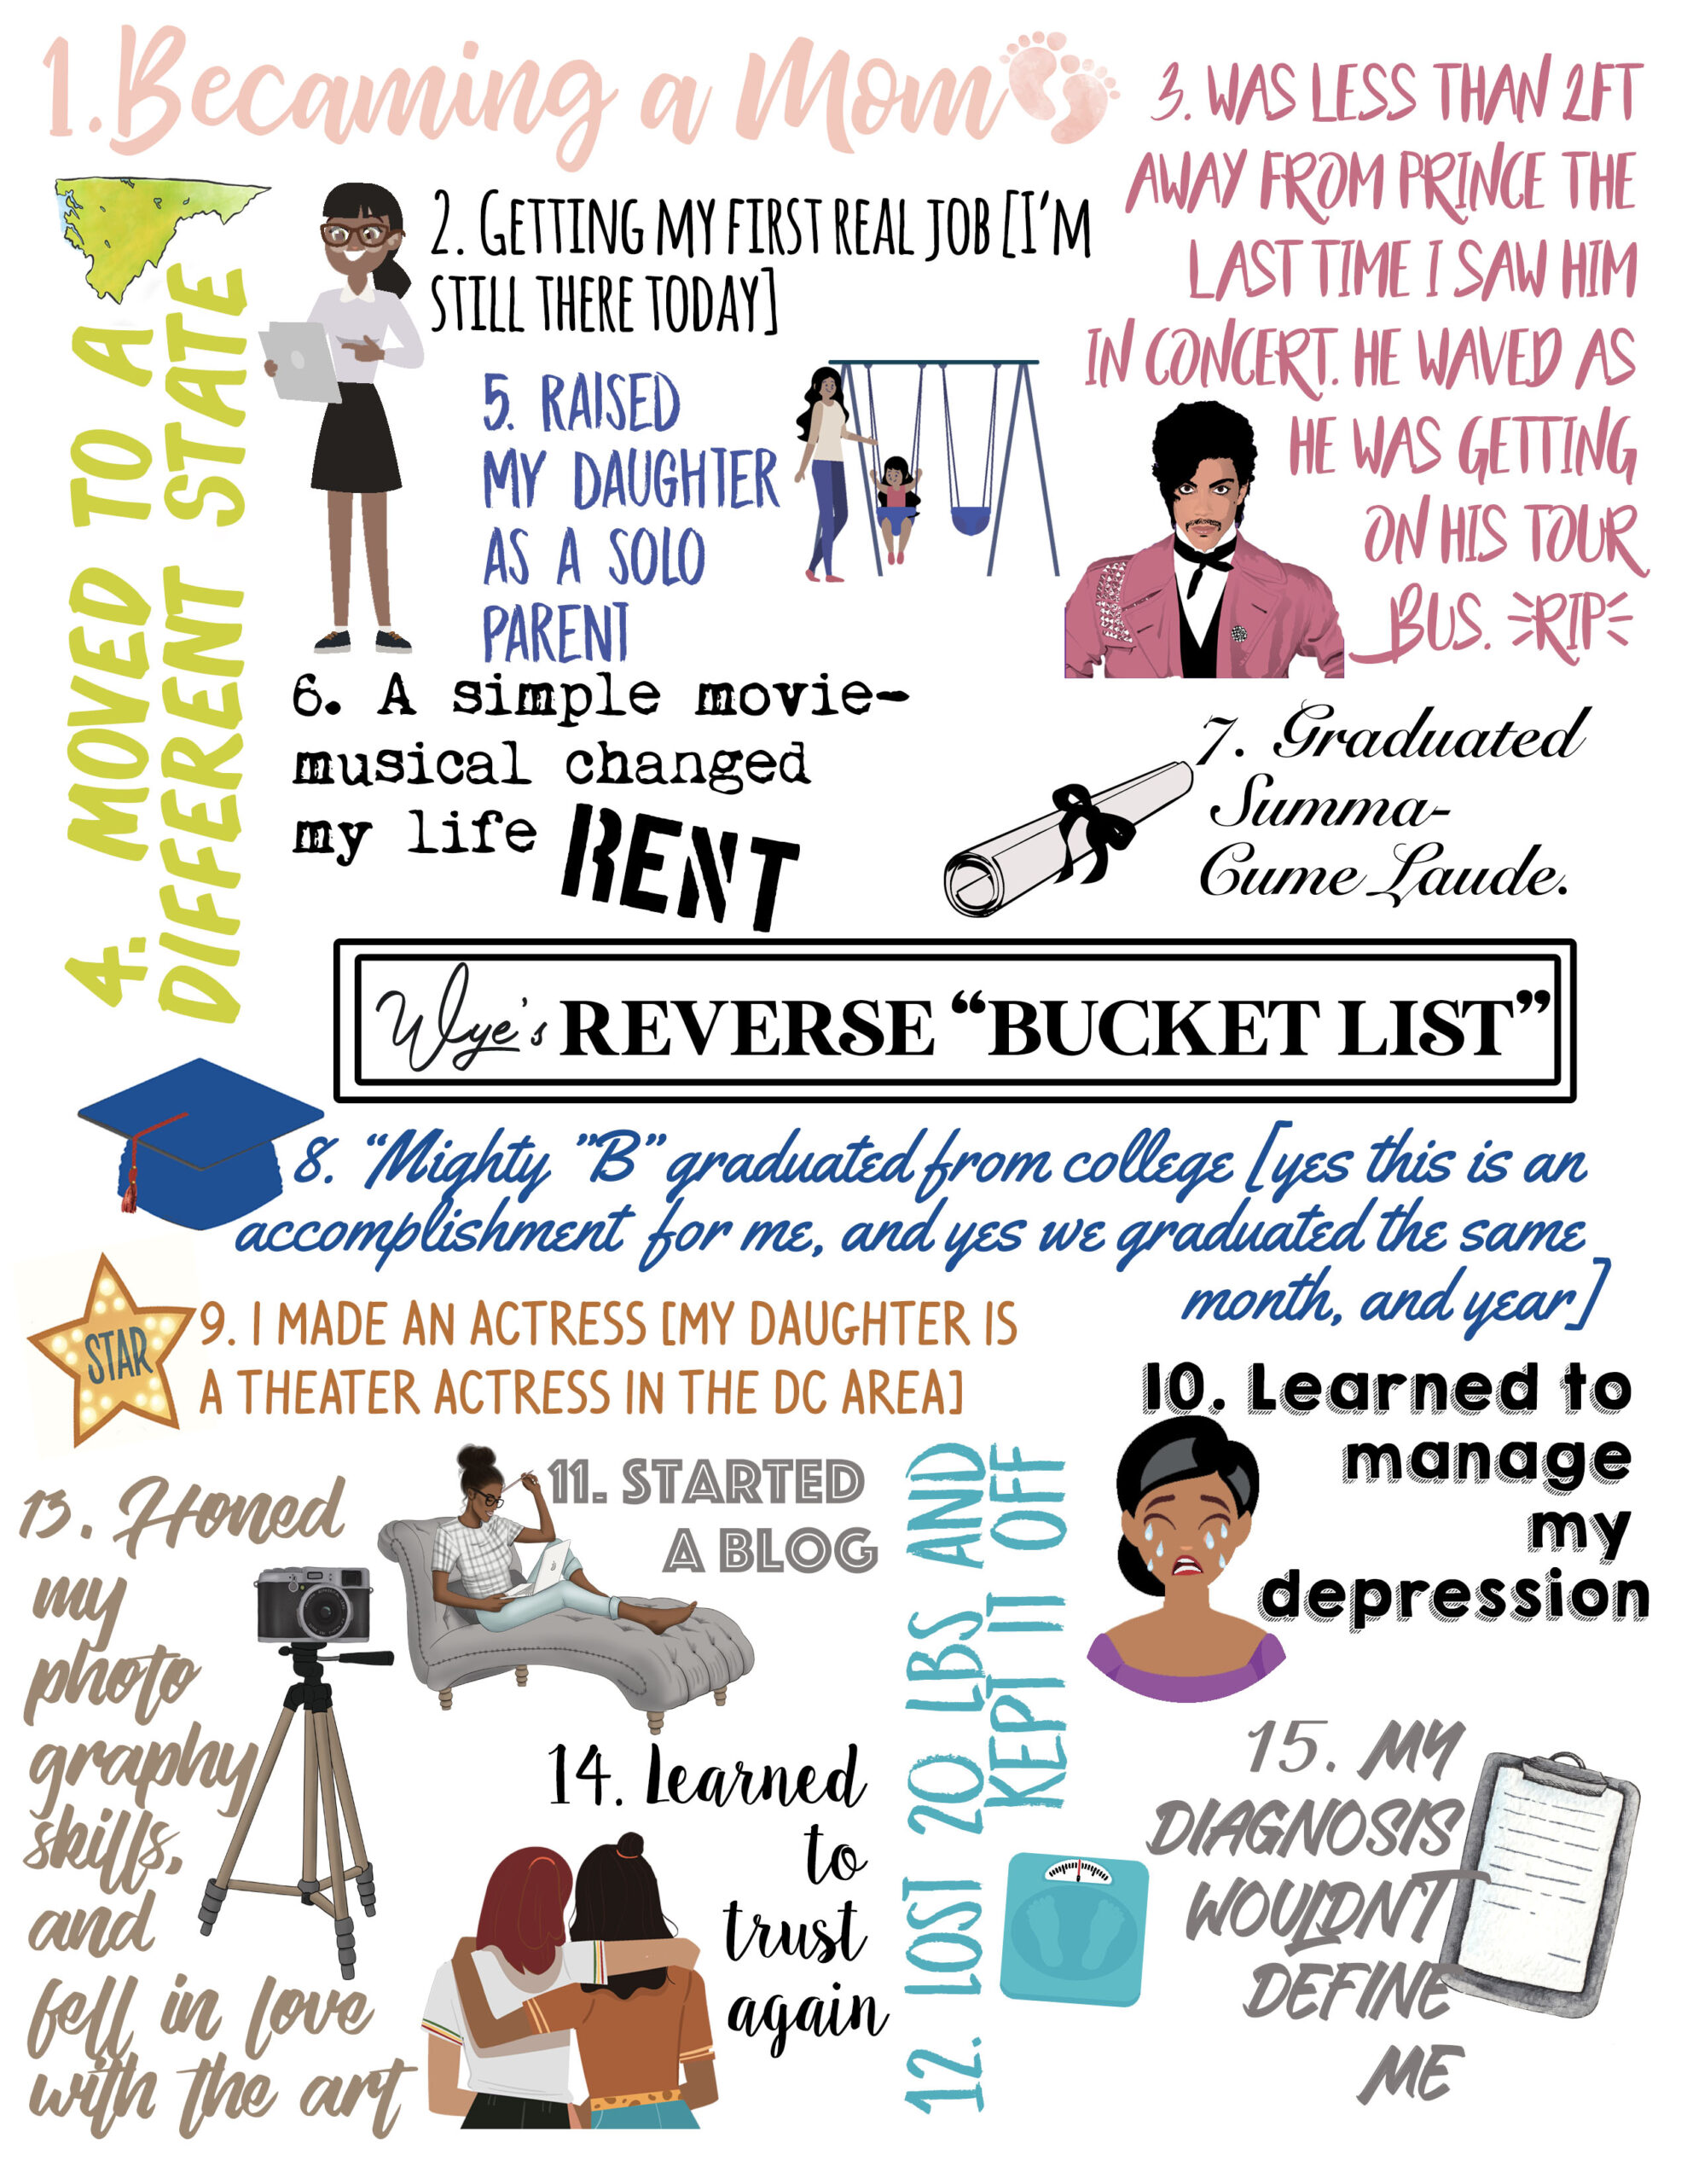 1. Becaming a Mom
2. GETTING MY FIRST REAL JOB [I'M
STILL THERE TODAY]
3. WAS LESS THAN 2FT
AWAY FROM PRINCE THE
LAST TIME I SAW HIM
IN CONCERT. HE WAVED AS
HE WAS GETTING
ON HIS TOUR
BUS. RIP
4. MOVED TO A
DIFFERENT STATE
5. RAISED
MY DAUGHTER
AS A SOLO
PARENT
6. A simple movie-
musical changed
my life RENT
7. Graduated
Summa-
Cume Laude.
Wye's REVERSE “BUCKET LIST”
8. “Mighty ”B” graduated from college [yes this is an
accomplishment for me, and yes we graduated the same
month, and year]
STAR
9. I MADE AN ACTRESS [MY DAUGHTER IS
A THEATER ACTRESS IN THE DC AREA]
10. Learned to
manage
my
depression
11. STARTED
A BLOG
12. LOST 20 LBS AND
KEPT IT OFF
13. Honed
my
photo
graphy
skills,
and
fell in love
with the art
14. Learned
to
trust
again
15. MY
DIAGNOSIS
WOULDNT
DEFINE
ME